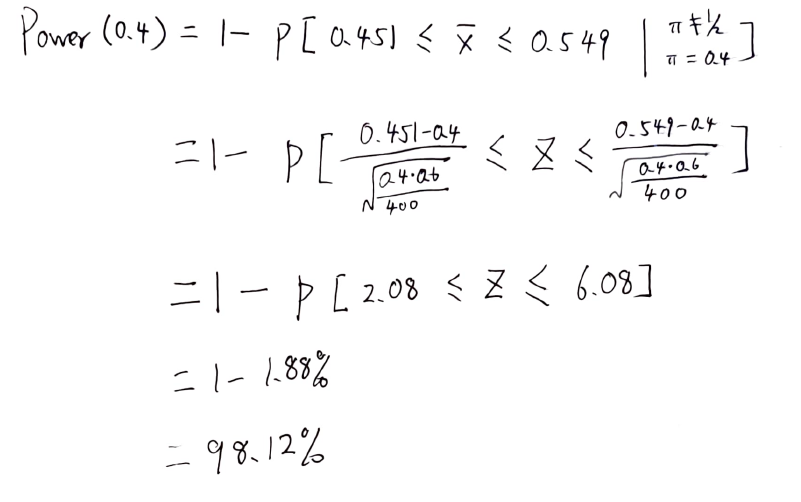 Power (0.4) = 1 - P[ 0.451 ≤ x̄ ≤ 0.549 | π ≠ 1/2 π = 0.4 ]
= 1 - P[ (0.451-0.4)/√(0.4·0.6/400) ≤ Z ≤ (0.549-0.4)/√(0.4·0.6/400) ]
= 1 - P[ 2.08 ≤ Z ≤ 6.08]
= 1 - 1.88%
= 98.12%